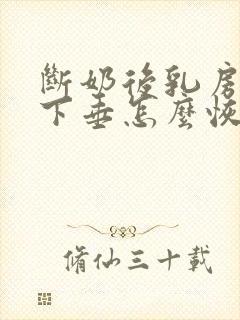 斷奶後乳房
下垂怎麼恢
脩仙三十載